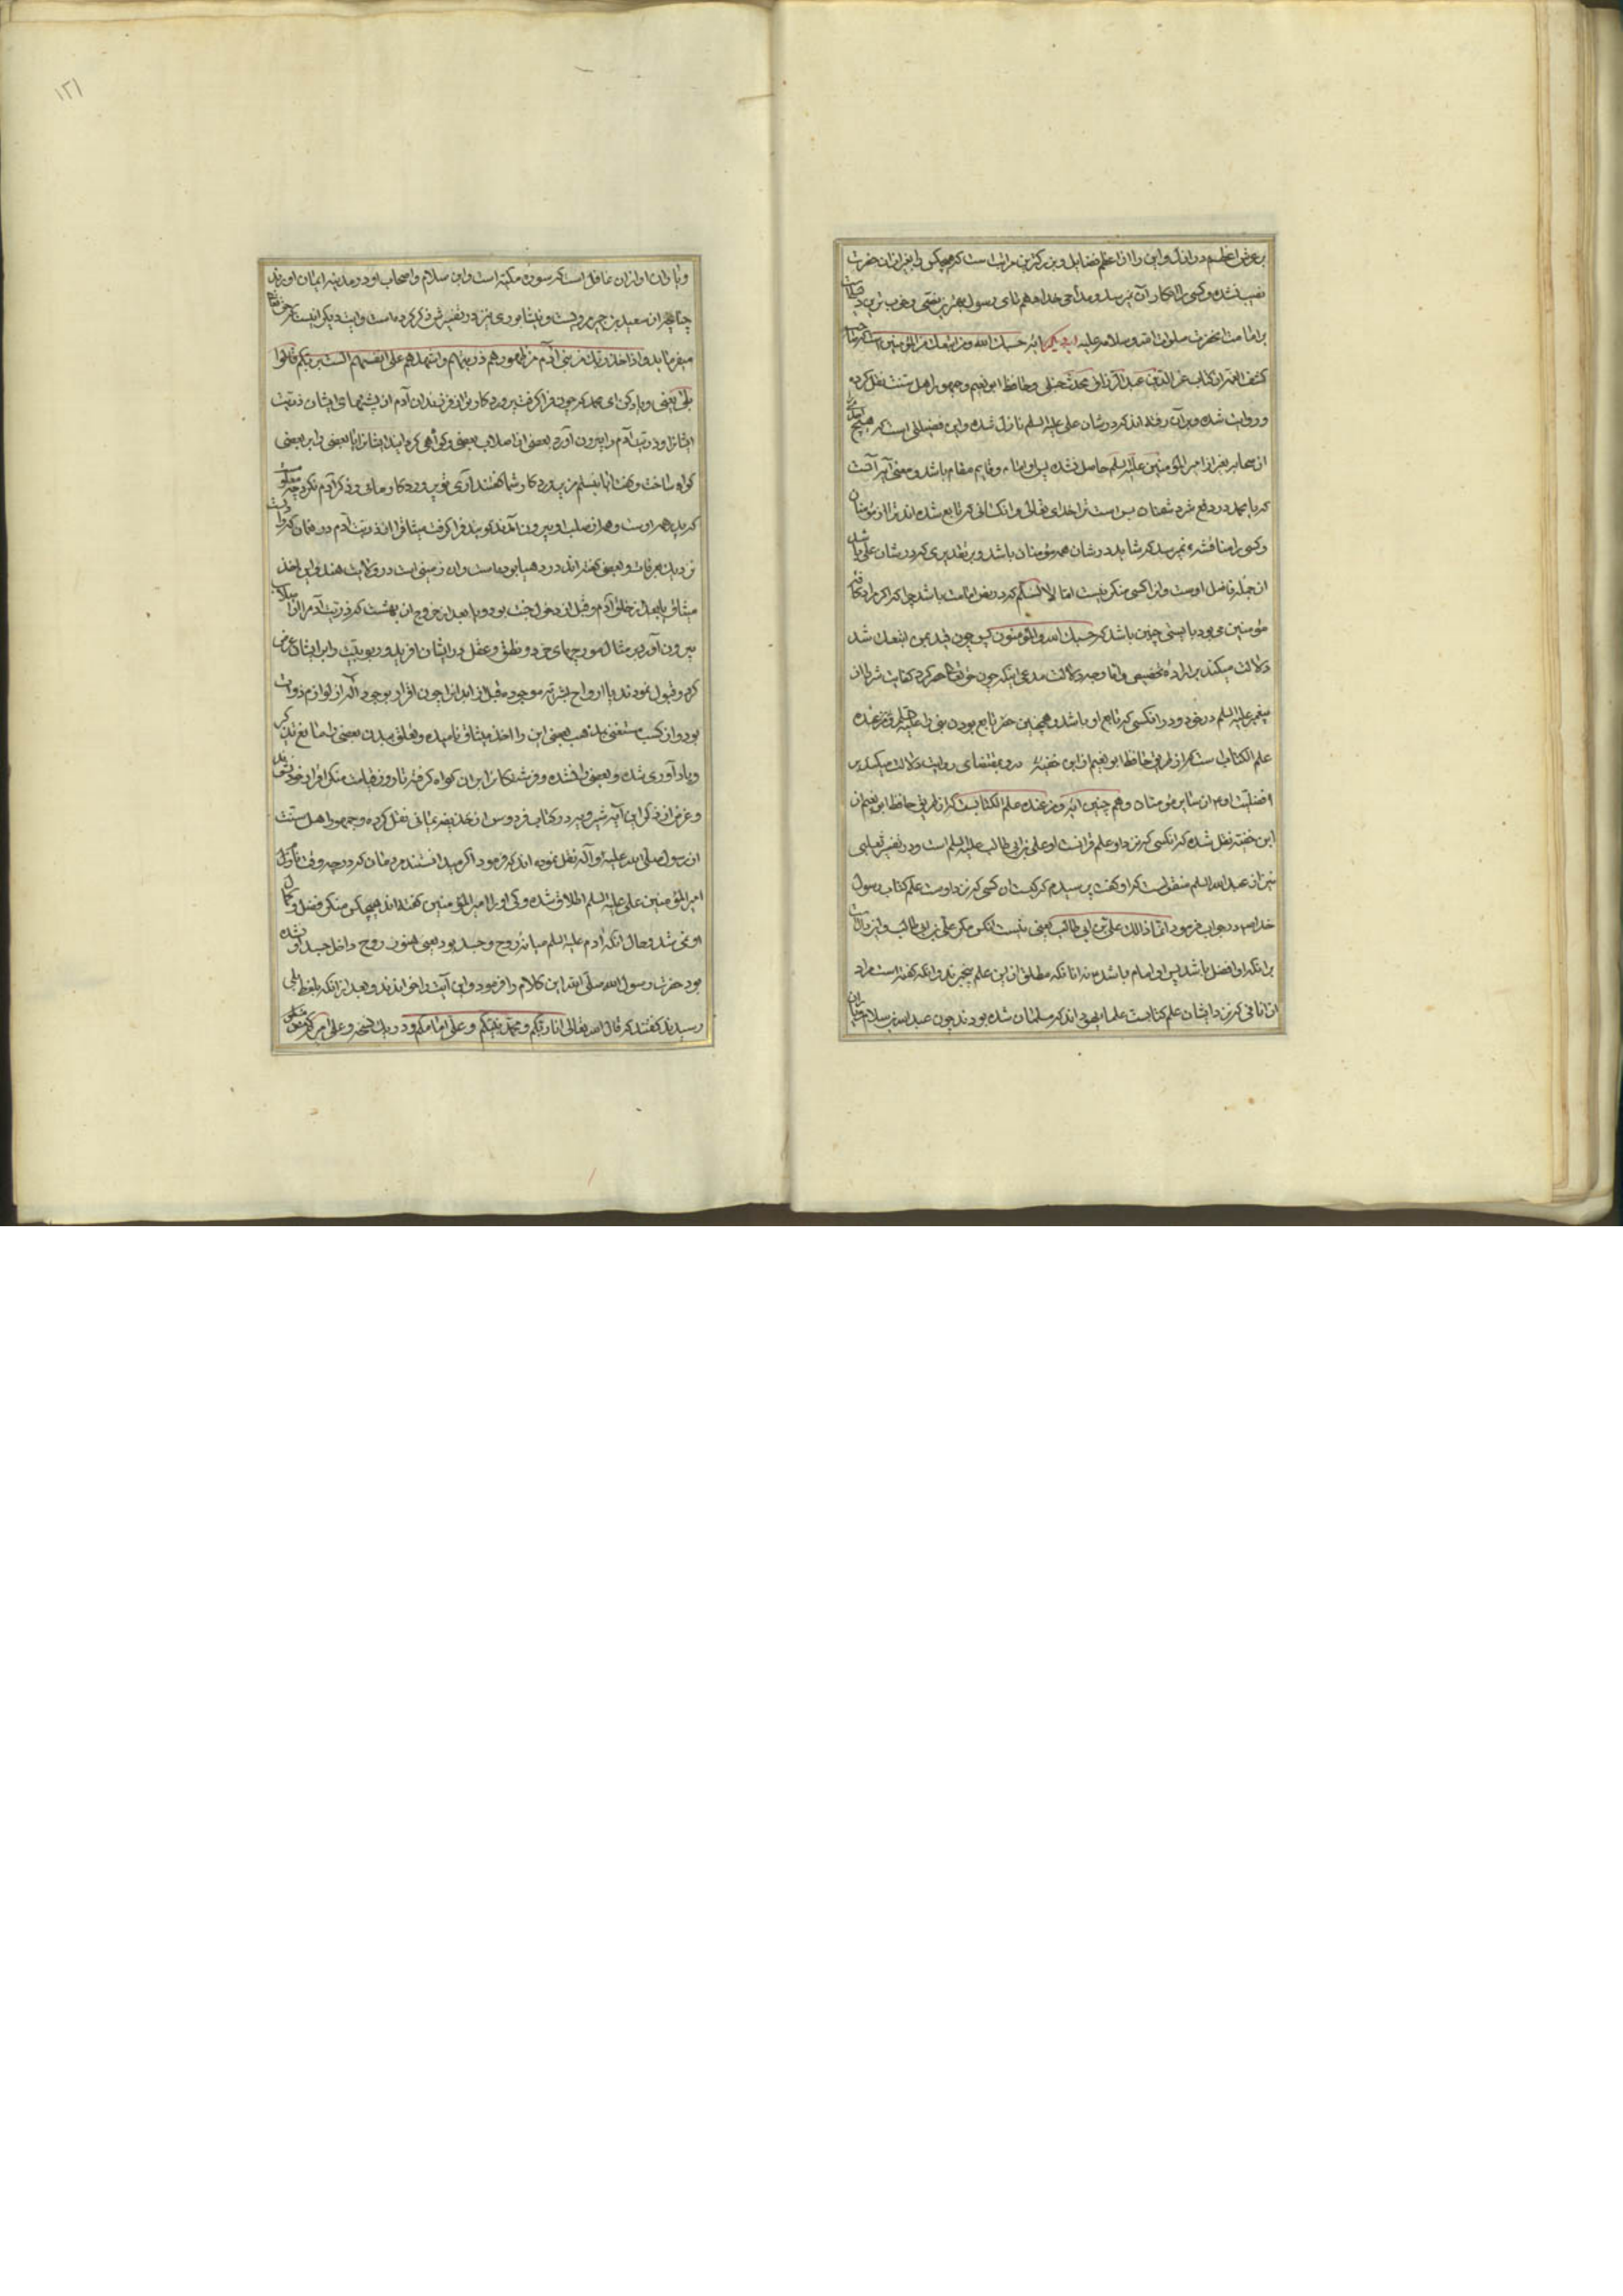 بر عرش اعظم در انداز و این را از اعظم فضایل و بزرکترین مراتب است که هیچکس را بغیر از ان حضرت
نصیب نشده و کسی را انکار آن نمیرسد
بر امامت انحضرت صلوات الله و سلامه علیه آیه حسبک الله و من اتبعک من المؤمنین است که صاحب
کشف الغمه از کتاب عز الدین عبد الرزاق محدث حنبلی و حافظ ابو نعیم و جمهور اهل سنت نقل کرده
و روایت شده و بر آن رفته اند که در شان علی علیه السلم نازل شده و این فضیلتی است که هیچ
از صحابه بغیر از امیر المؤمنین علیه السلم حاصل نشده پس او امام و قایم مقام باشد و معنی آیه آنست
که یا محمد در دفع شر دشمنان بس است ترا خدای تعالی و انکسانی که تابع شده اند ترا از مؤمنان
و کسی را مناقشه نمیرسد که شاید در شان همه مؤمنان باشد و بر تقدیری که در شان علی باشد
از جمله فضل اوست و انرا کسی منکر نیست اما لا نسلم که در نص امامت باشد چرا که اکر مراد کافه
مؤمنین می بود بایستی چنین باشد که حسبک الله و المؤمنون پس چون قید بمن اتبعک شد
دلالت میکند بر اراده تخصیص و اما وجه دلالت مدعی اینکه چون حق تعالی حصر کرد کفایت شر را از
پیغمبر علیه السلم در خود و در انکسی که تابع او باشد و همچنین حصر تابع بودن و من عنده
علم الکتاب است که از طریق حافظ ابو نعیم از ابن حنفیه مروی بمقتضای روایت دلالت میکند بر
افضلیت او از سایر مؤمنان و هم چنین آیه و من عنده علم الکتابست که از طریق حافظ ابو نعیم از
ابن حنفیه نقل شده که انکسی که نزد او علم قرانست او علی بن ابی طالب علیه السلم است و در تفسیر ثعلبی
نیز از عبد الله السلم منقولست که او کفت پرسیدم که کیست ان کسی که نزد اوست علم کتاب رسول
خدا ص در جواب فرمود انما ذالک علی بن ابی طالب یعنی نیست انکس مکر علی بن ابی طالب و این دالست
برانکه او افضل باشد پس او امام باشد نه انانکه مطلق از این علم بیخبرند و انکه کفته است مراد
از انانی که نزد ایشان علم کتابست علماء یهود اند که مسلمان شده بودند چون عبد الله بن سلام
و یاران او از ان غافل است که سوره مکیه است و ابن سلام و اصحاب او در مدینه ایمان اورده اند
چنانچه از سعید بن جبیر مرویست و نیشابوری نیز در تفسیرش ذکر کرده است و آیت دیکر
میفرماید و اذ اخذ ربک من بنی آدم من ظهورهم ذریتهم و اشهدهم علی انفسهم الست بربکم قالوا
بلی یعنی و یاد کن ای محمد که چون فرا کرفت پروردکار تو از فرزندان آدم از پشتهای ایشان ذریت
ایشانرا و ذریت آدم را بیرون آورد بعضی از اصلاب بعضی و کواهی کردانید ایشانرا بعضی را بر بعضی
کواه ساخت و کفت ایا نیستم من پروردکار شما کفتند آری توئی پروردکار ما و ذکر آدم نکرد
که پدر همه اوست و همه از صلب او بیرون آمدند کویند فرا کرفت میثاق را از ذریت آدم در نعمان که
نزدیک بعرفات و بعضی کفته اند در دهنا بوده است و ان زمینی است در ولایت هند و این اخذ
میثاق بعد از خلق آدم و قبل از دخول جنت بود و یا بعد از خروج از بهشت که ذریت آدم را از
بیرون آورد بر مثال مورچهای خرد و نطق و عقل در ایشان افرید و ربوبیت را بر ایشان عرض
کرد و قبول نمودند یا ارواح بشریه موجوده قبل از ابدانرا چون اقرار بوجود اله از لوازم ذوات
بود و از کسب مستغنی بمذهب بعضی این را اخذ میثاق نامیده و تعلق ببدن بعضی را مانع
و یاد آوری شده و بعضی را نشده و فرشتکانرا بران کواه کرفته تا روز قیامت منکر اقرار خود
و غرض از ذکر این آیه شیرویه در کتاب فردوس از حذیفه یمانی نقل کرده و جمهور اهل سنت
از رسول صلی الله علیه و آله نقل نموده اند که فرمود اکر میدانستند مردمان که در چه وقت نام
امیر المؤمنین علی علیه السلم اطلاق شده و کی او را امیر المؤمنین کفته اند هیچکس منکر فضل و کمال
او نمی شد و حال آنکه آدم علیه السلم میانه روح و جسد بود یعنی هنوز روح داخل جسد او نشده
بود حضرت رسول الله صلی الله این کلام را فرمود و این آیت را خواندند و بعد از آنکه بلفظ بلی
رسیدند کفتند که قال الله تعالی انا ربکم و محمد نبیکم و علی امامکم و در یک نسخه و علی امیرکم
۱۲۱